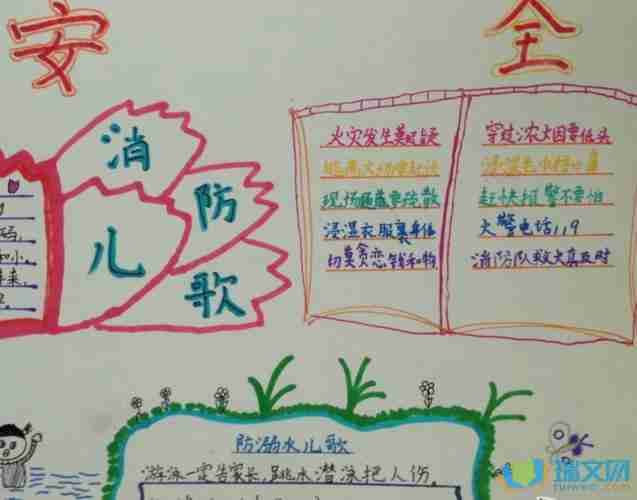 安 全
消
防
儿
歌
码,
和小,
来,
火灾发生莫
现场 要疏散
浸湿衣服裹身
切莫贪恋钱和物
穿过浓 要低头
浸湿毛巾捂口鼻
赶快报警不要怕
火警电话119
消防队救火真及时
防溺水儿歌
游泳一定告家长,跳水潜泳把人伤。
瑞文网
ruiwen.com